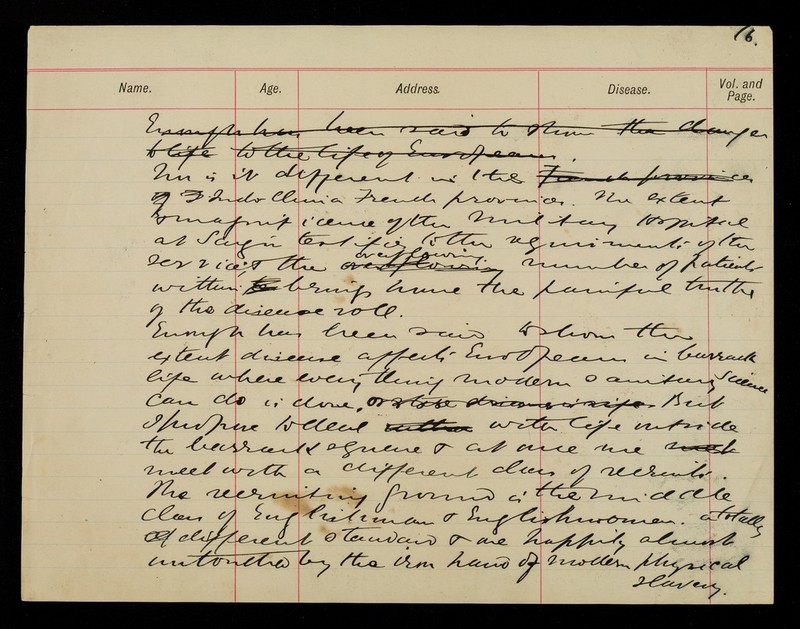 16.
Name. Age. Address. Disease. Vol. and Page.
Enough has been said to show the danger
to life to the life of Europeans.
Nor is it different in the French provinces
of Indo China French provinces. The extent
& magnificence of the Military Hospital
at Saigon testifies to the requirements of the
service, & the overflowing overflowing number of patients
within brings home the painful truths
of the disease roll.
Enough has been said to show the
extent disease affects Europeans in barrack
life where every thing modern sanitary science
can do is done, But
I propose to deal rather with life outside
the barrack square & at once we meet
meet with a different class of recruits.
The recruiting ground is the middle
class of Englishman & Englishwomen. a totally
of different standard & are happily almost
untouched by the iron hand of modern physical
slavery.